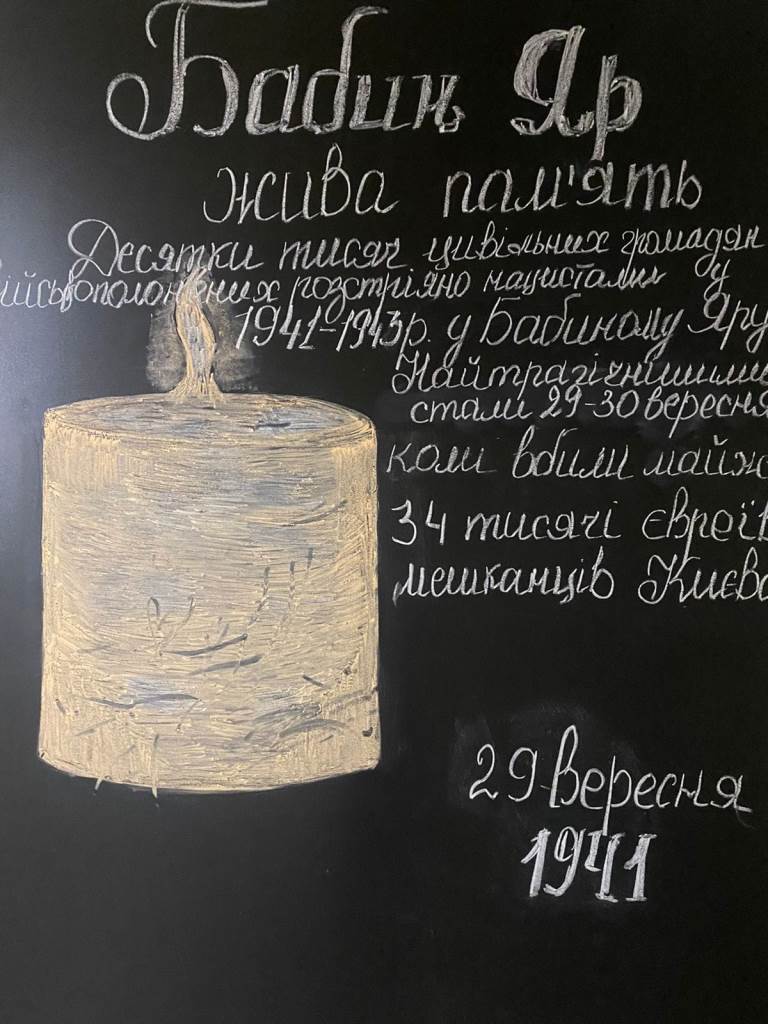 Бабин Яр
жива пам'ять
Десятки тисяч цивільних громадян
ійськовополонених розстріяно нацистами у
1941-1943р. у Бабиному Яру
Найтрагічнішими
стали 29-30 вересня
коли вбили майже
34 тисячі євреїв
мешканців Києва
29 вересня
1941